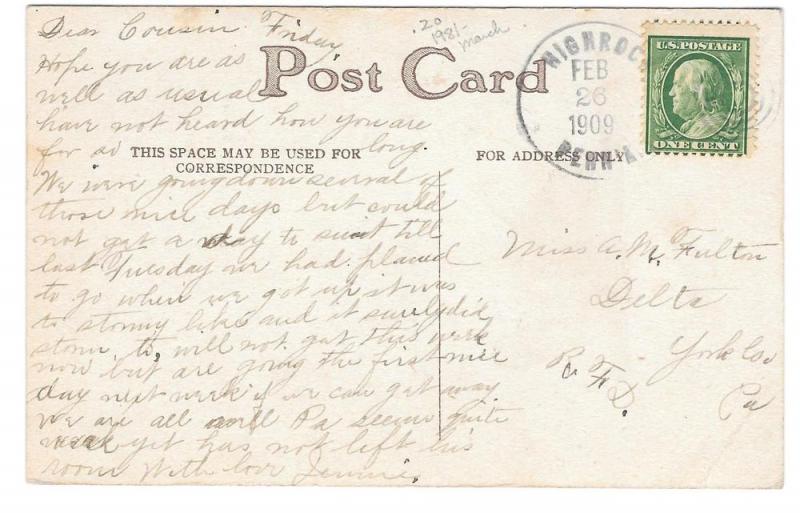 Dear Cousin Friday
Hope you are as
well as usual
have not heard how you are
for so long.
We were going down several of
those nice days but could
not get a day to suit till
last Tuesday we had planed
to go when we got up it was
so stormy like and it surely did
storm to, will not get this week
now but are going the first nice
day next week if we can get away
we are all well Pa seems quite
weak yet has not left his
room With love Jennie.
.20
1981-
March
Post Card
THIS SPACE MAY BE USED FOR
CORRESPONDENCE
FOR ADDRESS ONLY
HIGHROCK
FEB
26
1909
PENN'A.
U.S. POSTAGE
ONE CENT
Miss A. M. Fulton
Delta
York Co.
R. F. D.
Pa